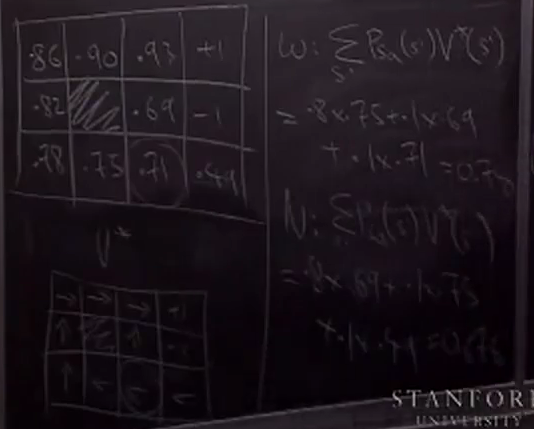 .86 .90 .93 +1
.82 .69 -1
.78 .75 .71 .49
V*
→ → → +1
↑ ↑ -1
↑ ← ← ←
W: Σ Psa(s')V*(s')
s'
= .8x.75+.1x.69
+ .1x.71 =0.740
N: Σ Psa(s')V*(s')
= .8x.69+.1x.75
+.1x.49 =0.676
STANFORD
UNIVERSITY